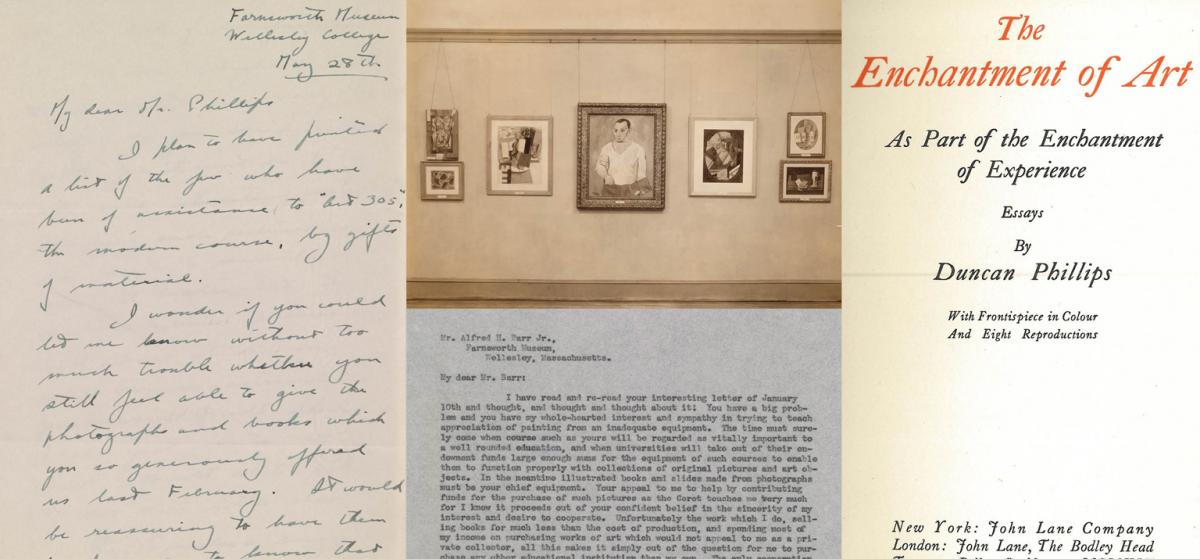 Farnsworth Museum
Wellesley College
May 28th
My dear Mr. Phillips
I plan to have printed
a list of the few who have
been of assistance to "Art 305",
the modern course, by gifts
of material.
I wonder if you could
let me know without too
much trouble whether you
still feel able to give the
photographs and books which
you so generously offered
us last February. It would
be reassuring to have them
to know that
Mr. Alfred H. Barr Jr.,
Farnsworth Museum,
Wellesley, Massachusetts.
My dear Mr. Barr:
I have read and re-read your interesting letter of January
10th and thought, and thought and thought about it! You have a big prob-
lem and you have my whole-hearted interest and sympathy in trying to teach
appreciation of painting from an inadequate equipment. The time must sure-
ly come when course such as yours will be regarded as vitally important to
a well rounded education, and when universities will take out of their en-
dowment funds large enough sums for the equipment of such courses to enable
them to function properly with collections of original pictures and art ob-
jects. In the meantime illustrated books and slides made from photographs
must be your chief equipment. Your appeal to me to help by contributing
funds for the purchase of such pictures as the Corot touches me very much
for I know it proceeds out of your confident belief in the sincerity of my
interest and desire to cooperate. Unfortunately the work which I do, sell-
ing books for much less than the cost of production, and spending most of
my income on purchasing works of art which would not appeal to me as a pri-
vate collector, all this makes it simply out of the question for me to pur-
chase any other educational institution than my own. The only
The
Enchantment of Art
As Part of the Enchantment
of Experience
Essays
By
Duncan Phillips
With Frontispiece in Colour
And Eight Reproductions
New York: John Lane Company
London: John Lane, The Bodley Head